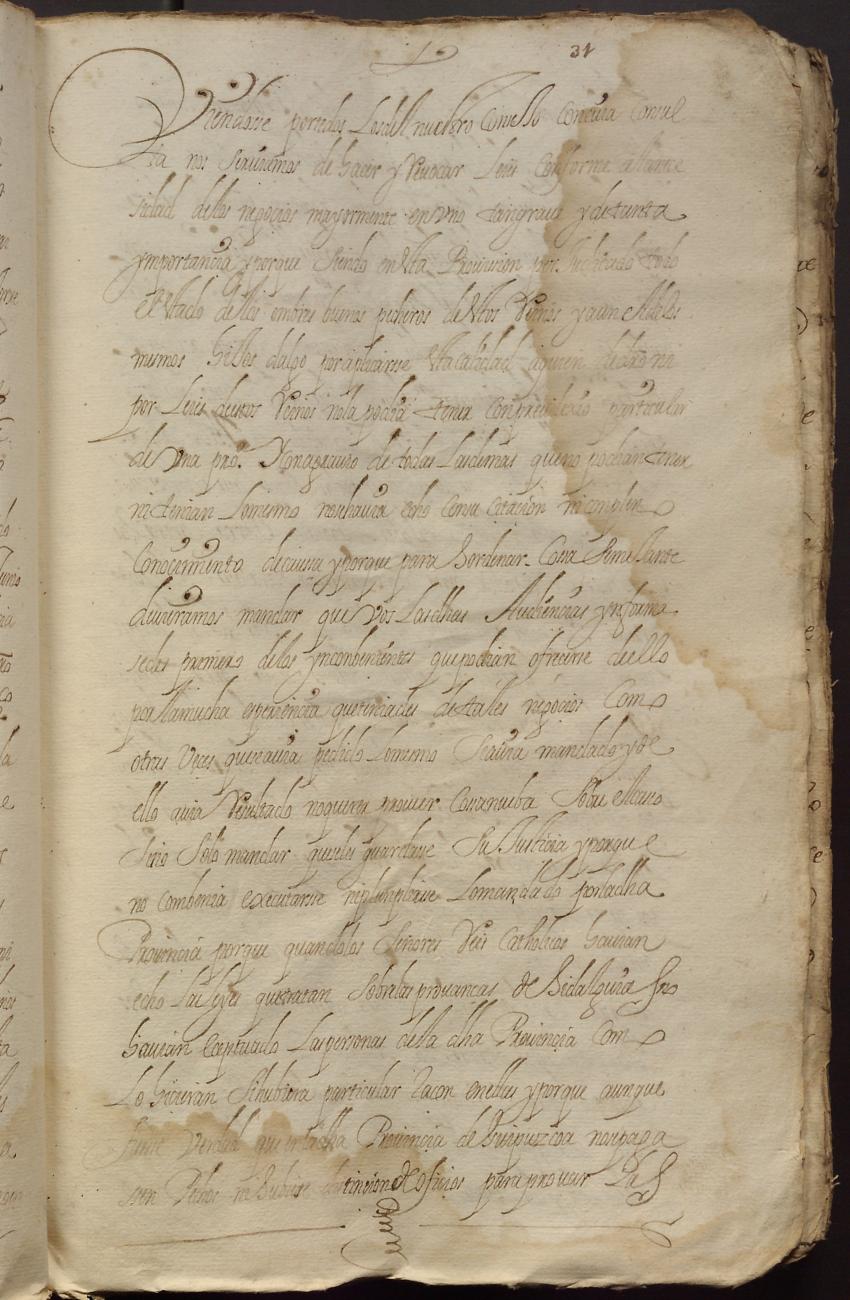 31
Viendose por todos los del nuestro Consejo Con cuia Consul
ta nos seruimos de hacer y Reuocar Leies Conforme a la nece
sidad de los negocios mayormente en vno tan graue y de tanta
ymportancia y porque siendo en esta Prouision todo
el estado de los ombres buenos pecheros destos Reinos y aun el de los
mismos hijos dalgo por aplicarse esta calidad a quien de dro no
por Leies destos Reinos no la podia tener Con preuilexio particular
de vna pro.ª Y en agrauio de todas Las demas que no podian tener
ni tenian Lo mismo no se hauia echo Con su Citacion ni complim.to
Conocimiento de caussa y porque para hordenar Cosa semejante
deuieramos mandar que vos Las dhas Audiencias ynforma
sedes primero de los ynconbenientes que podian ofrecerse de ello
por la mucha esperiencia que teniades de tales negocios Como
otras Veces que se auia pedido Lo mismo se auia mandado y de
ello auia Resultado no querer proueer Cossa nueba sobre el caso
sino solo mandar que se les guardase su Justicia y porque
no combenia executarse ni cumplirse Lo mandado por la dha
Prouincia porque quando los Señores Reies Catholicos hauian
echo Las leyes que tratan sobre las prouancas de hidalguia no
hauian eceptuado Las personas de la dha Prouincia Como
Lo hicieran si hubiera particular Racon en ellas y porque aunque
fuese Verdad que en la dha Prouincia de Guipuzcoa no se paga
sen Pechos ni hubiese distincion de oficios para prouar Pos